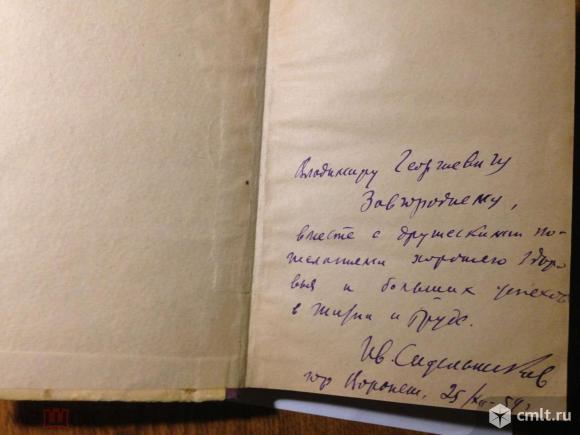 Владимиру Георгиевичу
Завгороднему,
вместе с дружескими по-
желаниями хорошего здоро-
вья и больших успехов
в жизни и труде.
Ив. Сидельников
гор Воронеж, 25/XII-59 г.
cmlt.ru